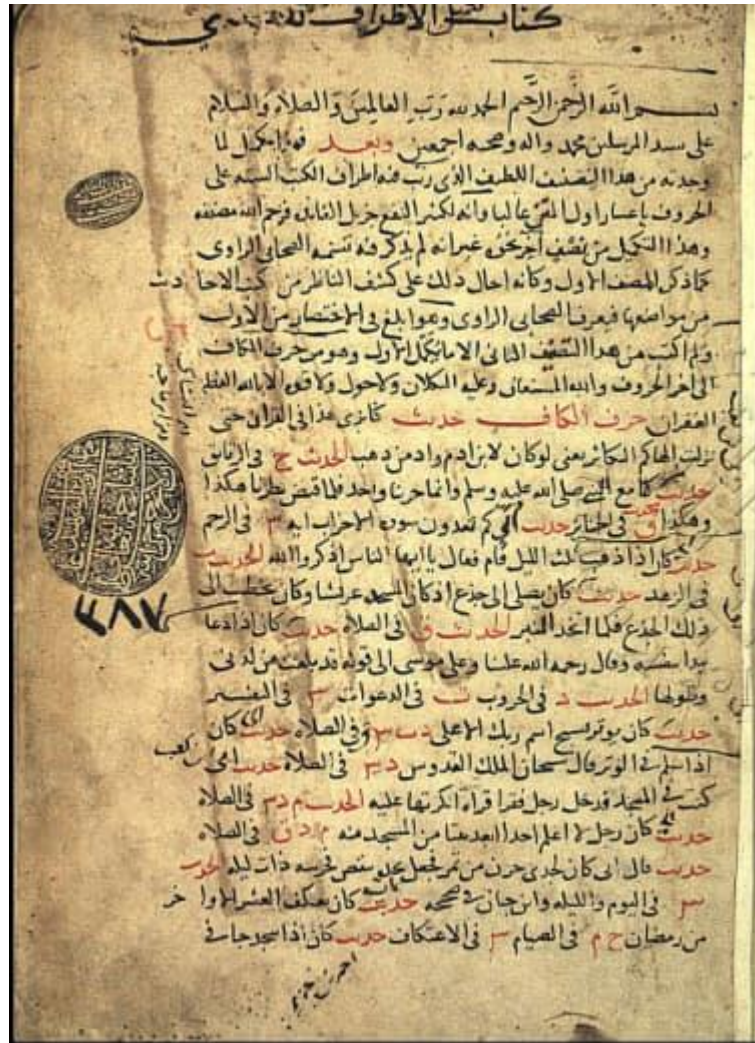 كتاب الاطراف
بسم الله الرحمن الرحيم الحمد لله رب العالمين والصلاة والسلام
على سيد المرسلين محمد واله وصحبه اجمعين وبعد فهذا تكميل لما
وجدته من هذا التصنيف اللطيف الذى رتب فيه اطراف الكتب الستة على
الحروف باعتبار اول المتن غالبا وانه لكثير النفع جزيل الفايدة فرحم الله مصنفه
وهذا التكميل من تصنيف اخر نحوه غير انه لم يذكر فيه تسمية الصحابى الراوى
كما ذكر المصنف الاول وكانه احال ذلك على كشف الناظر من كتب الاحاديث
من مواضعها فيعرف الصحابى الراوى وهو ابلغ فى الاختصار من الاول
ولم اكتب من هذا التصنيف الثانى الا ما يكمل الاول وهو من حرف الكاف
الى اخر الحروف والله المستعان وعليه التكلان ولا حول ولا قوة الا بالله العلى العظيم
حرف الكاف حديث كنا نرى هذا فى القران حتى
نزلت الهاكم التكاثر يعنى لو كان لابن ادم واد من ذهب الحديث خ فى الرقاق
حديث كنا مع النبى صلى الله عليه وسلم وانما وجهنا واحد فلما قبض نظرنا هكذا
وهكذا ق فى الجنائز حديث كم تعدون سورة الاحزاب اية س فى الرجم
حديث كان اذا ذهب ثلث الليل قام فقال يا ايها الناس اذكروا الله الحديث ت
فى الزهد حديث كان يصلى الى جذع اذ كان المسجد عريشا وكان يخطب الى
ذلك الجذع فلما اتخذ المنبر الحديث ق فى الصلاة حديث كان اذا دعا
بدا بنفسه وقال رحمة الله علينا وعلى موسى الى قوله قد بلغت من لدنى
وثقلها الحديث د فى الحروف ت فى الدعوات س فى التفسير
حديث كان يوتر بسبح اسم ربك الاعلى د س ق فى الصلاة حديث كان
اذا سلم فى الوتر قال سبحان الملك القدوس د س فى الصلاة حديث ابى بن كعب
كنت فى المسجد فدخل رجل فقرا قراة انكرتها عليه الحديث م د س فى الصلاة
حديث كان رجل لا اعلم احدا ابعد بيتا من المسجد منه م د ق فى الصلاة
حديث قال ابى كان لجدى جرن من تمر فجعل يجده ينقص فحرسه ذات ليلة الحديث
س فى اليوم والليلة وابن حبان فى صحيحه حديث كان يعتكف العشر الاواخر
من رمضان خ م فى الصيام س فى الاعتكاف حديث كان اذا سجد جافى
٣٨٧